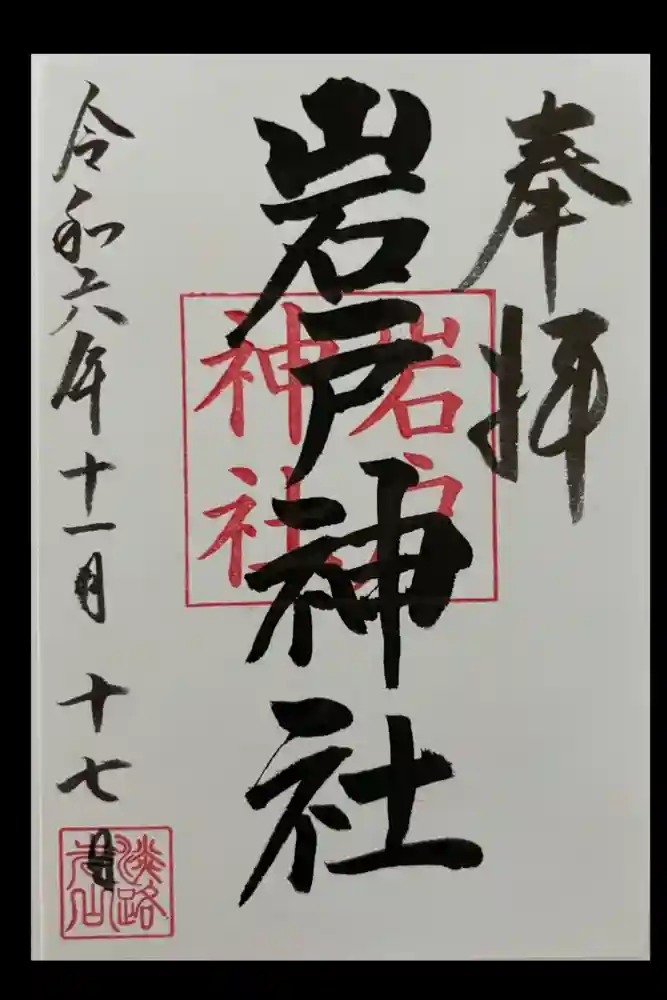 奉拝
岩戸神社
岩戸
神社
令和六年十一月十七日
淡路
先山